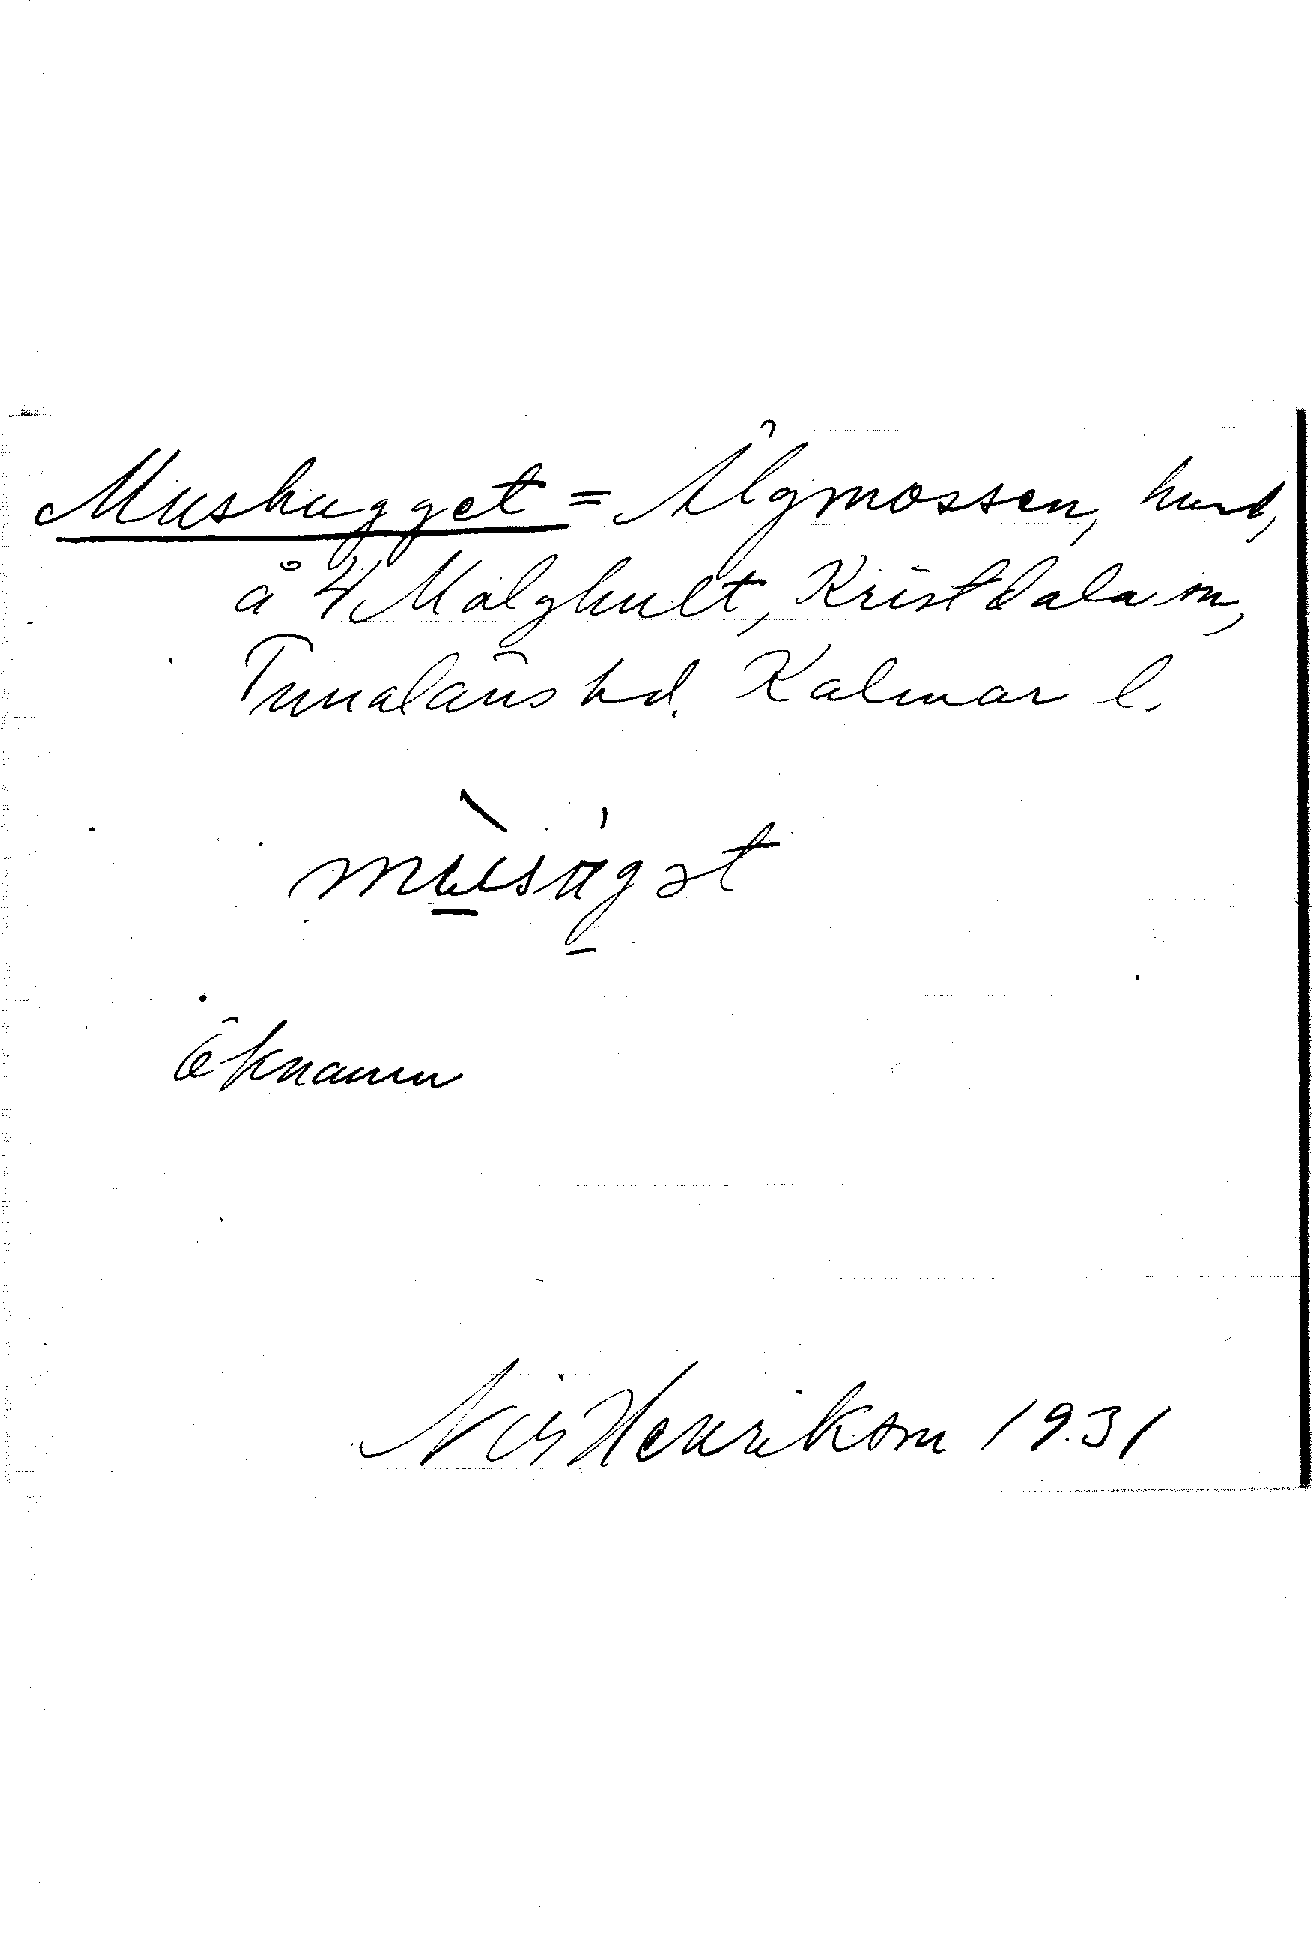 Mushugget = Älgmossen, hmd,
å 4 Målghult, Kristdala sn,
Tunaläns hd. Kalmar l.
öknamn
Nils Henrikson 1931